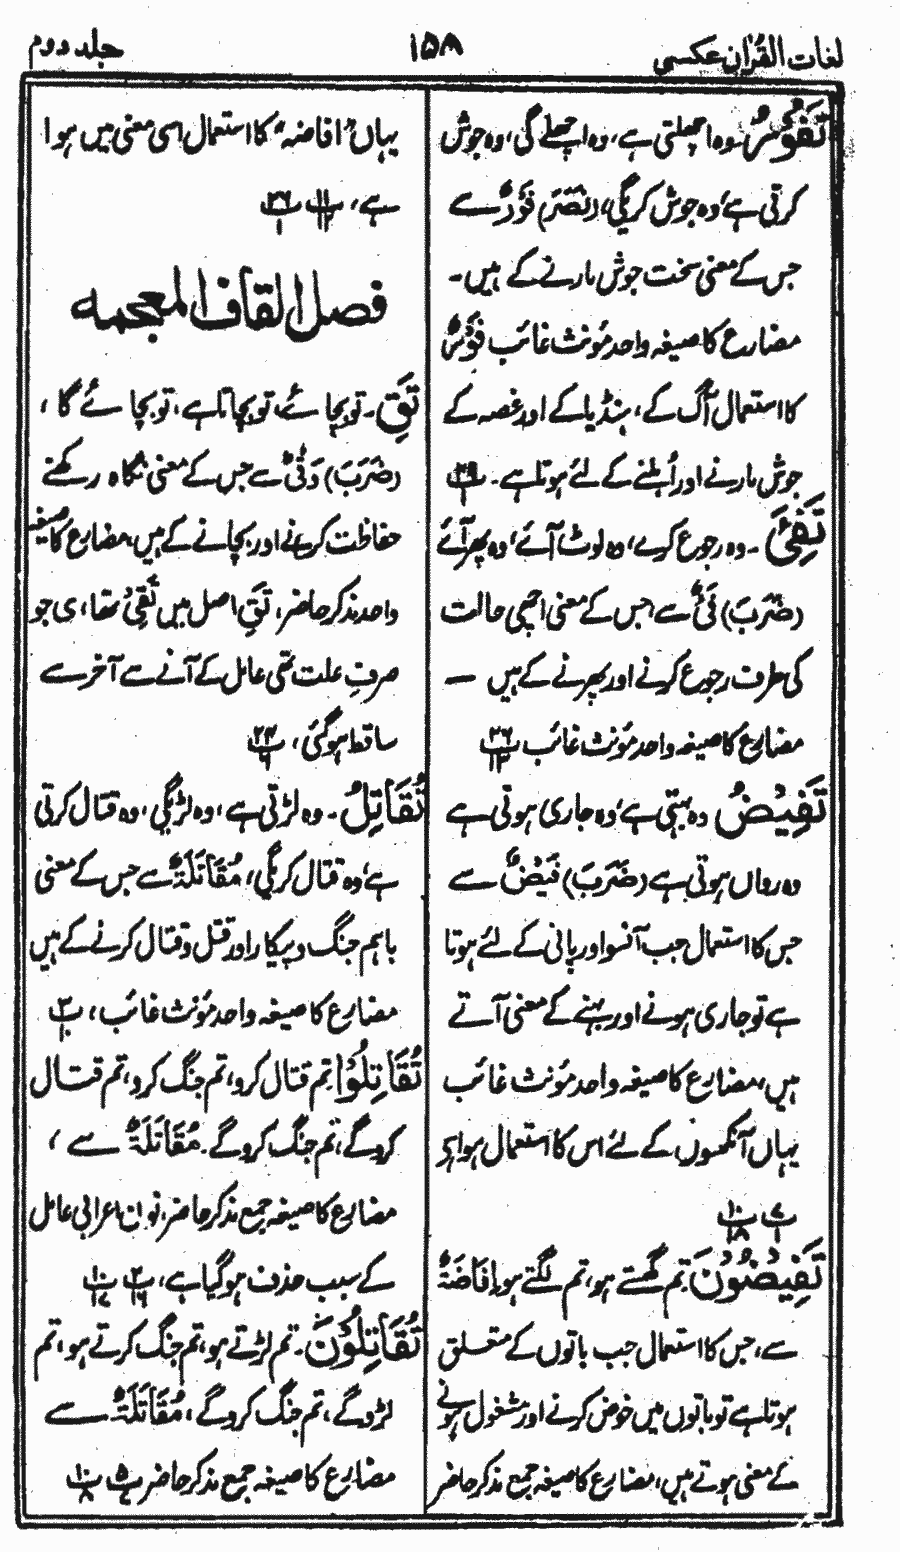 لغات القرآن عکسی
۱۵۸
جلد دوم
تَفُوْرُ ۔ وہ اچھلتی ہے، وہ اچھلے گی، وہ جوش
کرتی ہے، وہ جوش کریگی، (نَصَرَ) فَوْرٌ سے
جس کے معنی سخت جوش مارنے کے ہیں۔
مضارع کا صیغہ واحد مؤنث غائب فَوْرٌ
کا استعمال آگ کے، ہنڈیا کے اور غصہ کے
جوش مارنے اور اُبلنے کے لئے ہوتا ہے۔ پ۲۹
تَفِیْٓءَ ۔ وہ رجوع کرے، وہ لوٹ آئے، وہ پھر آئے
(ضَرَبَ) فَیْءٌ سے جس کے معنی اچھی حالت
کی طرف رجوع کرنے اور پھرنے کے ہیں ۔
مضارع کا صیغہ واحد مؤنث غائب پ۲۶
تَفِیْضُ وہ بہتی ہے، وہ جاری ہوتی ہے
وہ رواں ہوتی ہے (ضَرَبَ) فَیْضٌ سے
جس کا استعمال جب آنسو اور پانی کے لئے ہوتا
ہے تو جاری ہونے اور بہنے کے معنی آتے
ہیں، مضارع کا صیغہ واحد مؤنث غائب
یہاں آنکھوں کے لئے اس کا استعمال ہوا ہے
پ۷ پ۱۰
تُفِیْضُوْنَ تم گھستے ہو، تم لگتے ہو، اِفَاضَۃٌ
سے، جس کا استعمال جب باتوں کے متعلق
ہوتا ہے تو باتوں میں خوض کرنے اور مشغول ہونے
کے معنی ہوتے ہیں، مضارع کا صیغہ جمع مذکر حاضر
یہاں "افاضہ" کا استعمال اسی معنی میں ہوا
ہے، پ۱۱ پ۲۶
فصل القاف المعجمہ
تَقِ ۔ تو بچائے، تو بچاتا ہے، تو بچائے گا،
(ضَرَبَ) وَقْیٌ سے جس کے معنی نگاہ رکھنے
حفاظت کرنے اور بچانے کے ہیں، مضارع کا صیغہ
واحد مذکر حاضر، تَقِ اصل میں تَقِیُ تھا، ی جو
حرفِ علت تھی عامل کے آنے سے آخر سے
ساقط ہوگئی، پ۲۴
تُقَاتِلُ ۔ وہ لڑتی ہے، وہ لڑیگی، وہ قتال کرتی
ہے، وہ قتال کریگی، مُقَاتَلَۃٌ سے جس کے معنی
باہم جنگ و پیکار اور قتل و قتال کرنے کے ہیں
مضارع کا صیغہ واحد مؤنث غائب، پ۳
تُقَاتِلُوْا تم قتال کرو، تم جنگ کرو، تم قتال
کروگے، تم جنگ کروگے۔ مُقَاتَلَۃٌ سے ،
مضارع کا صیغہ جمع مذکر حاضر، نون اعرابی عامل
کے سبب حذف ہوگیا ہے، پ۲ پ۱۰
تُقَاتِلُوْنَ ۔ تم لڑتے ہو، تم جنگ کرتے ہو، تم
لڑوگے، تم جنگ کروگے، مُقَاتَلَۃٌ سے
مضارع کا صیغہ جمع مذکر حاضر پ۵ پ۱۰